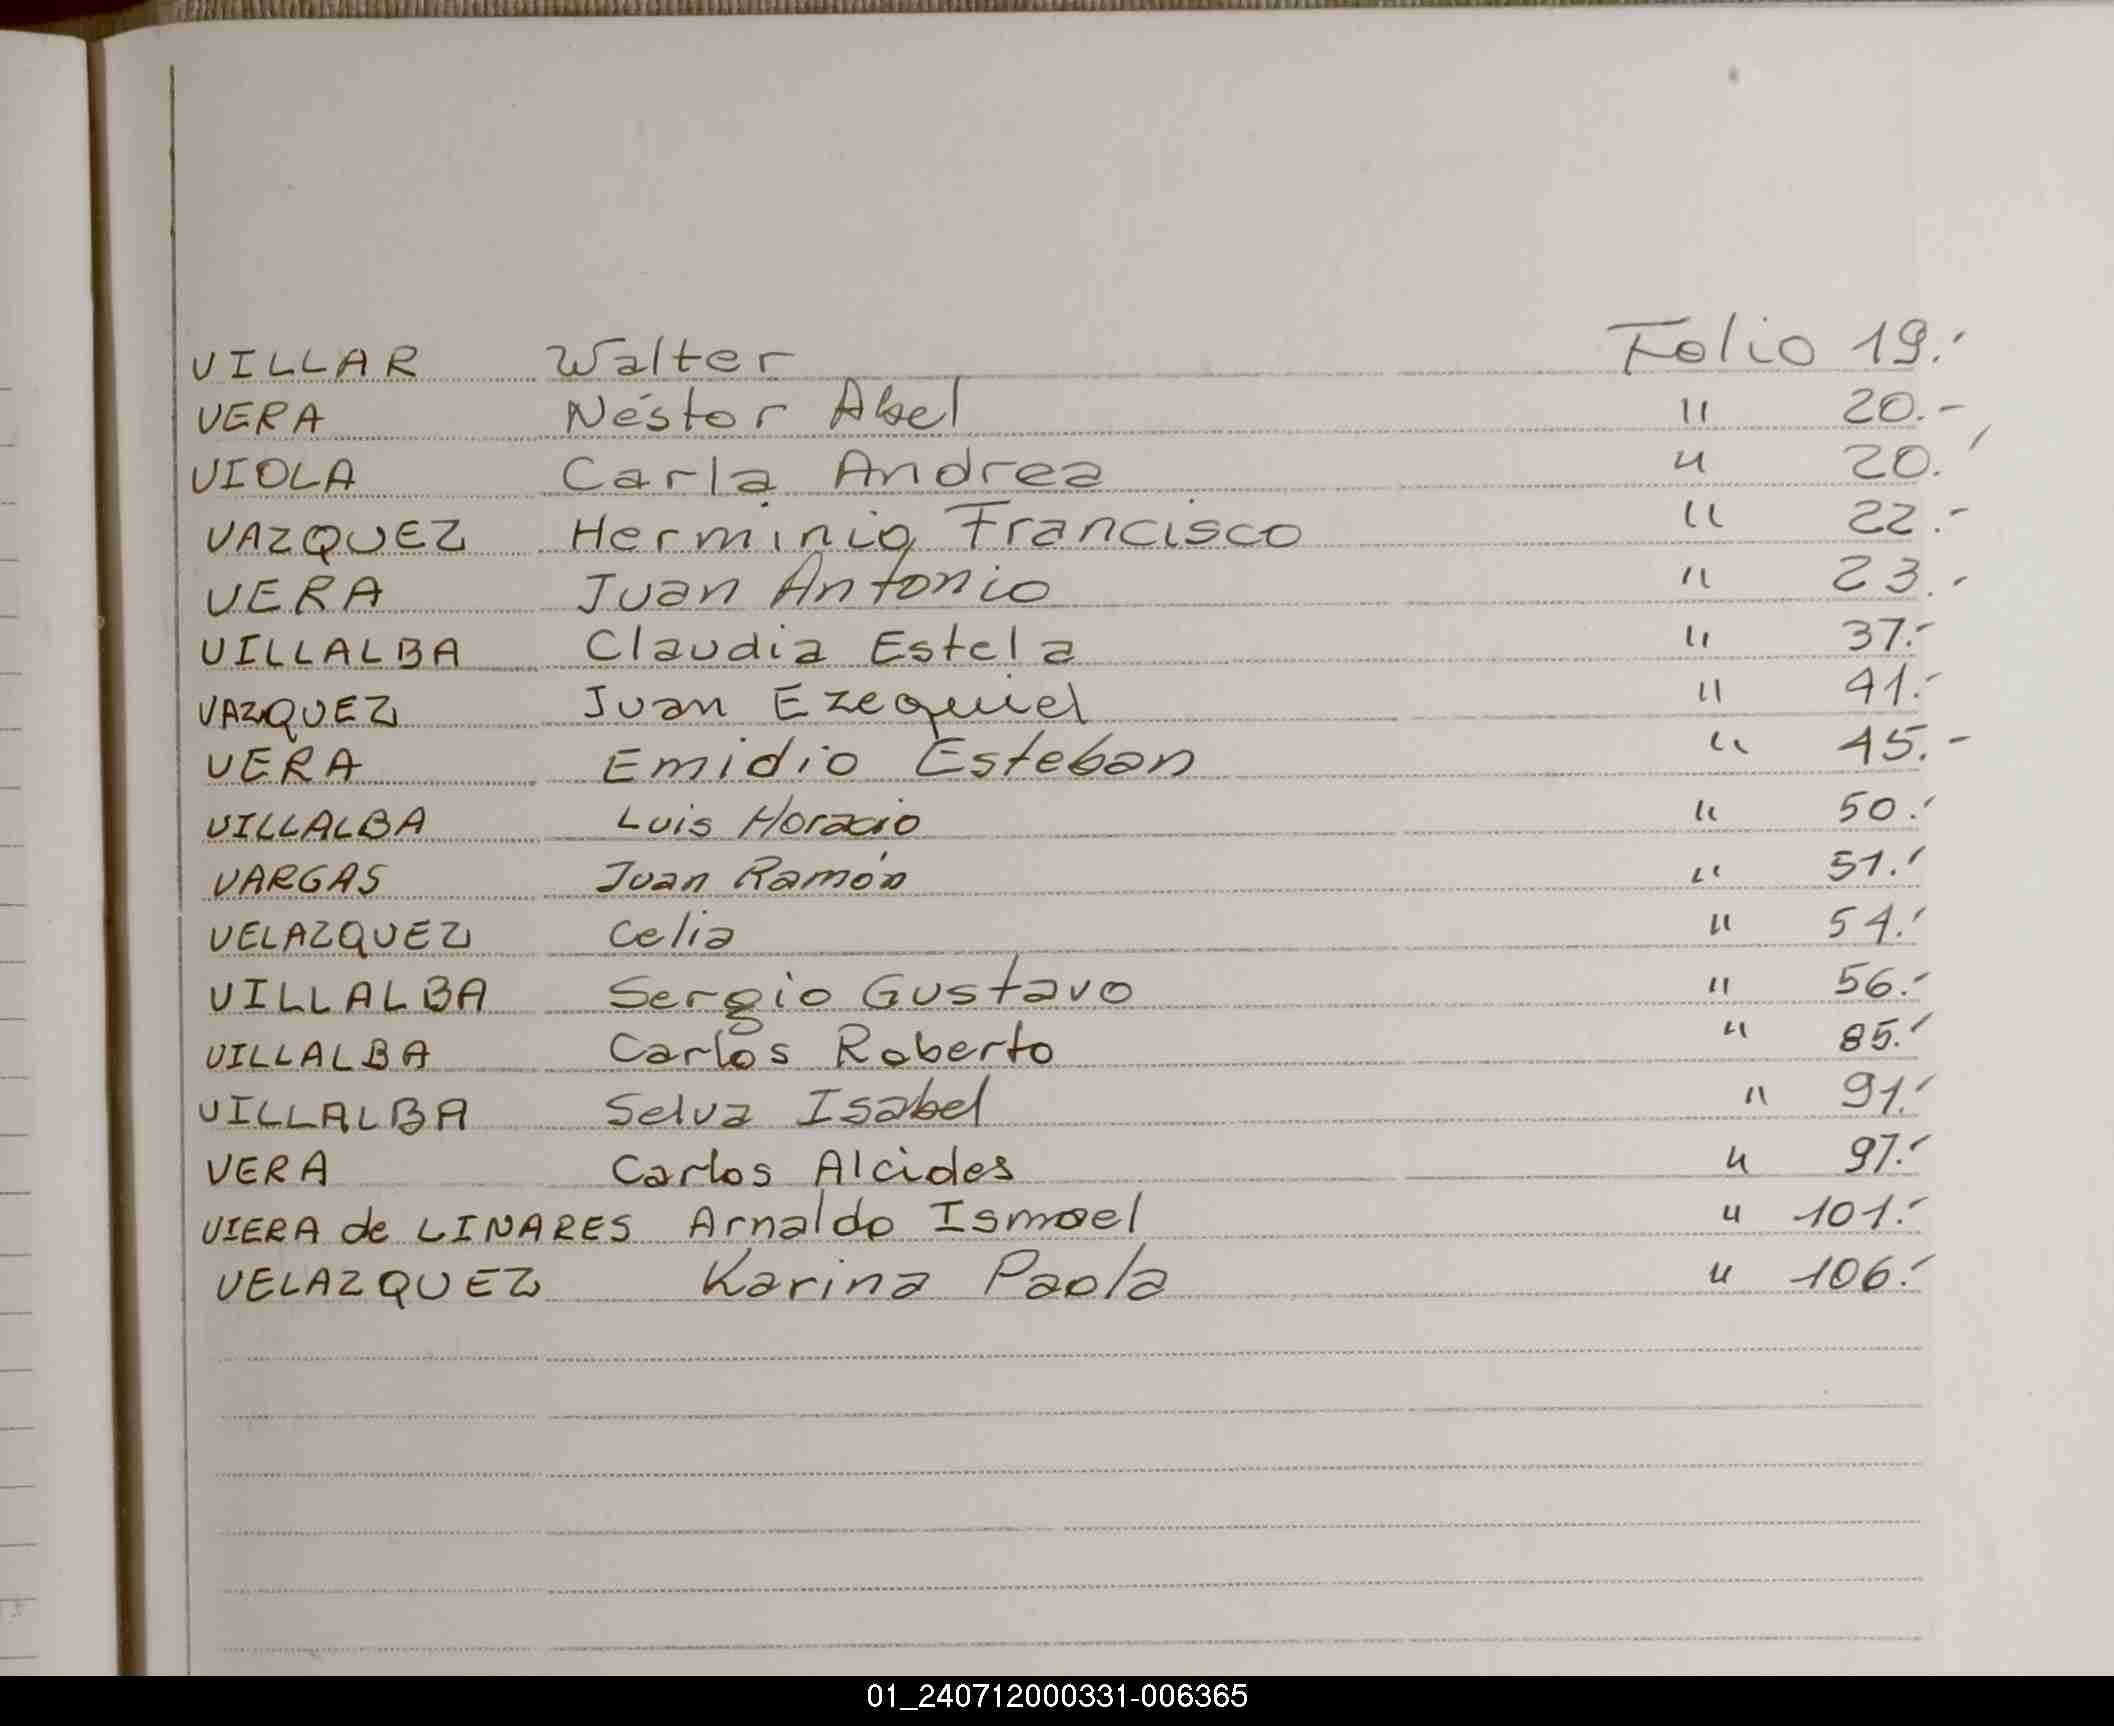 VILLAR Walter Folio 19.-
VERA Néstor Abel " 20.-
VIOLA Carla Andrea " 20.-
VAZQUEZ Herminio Francisco " 22.-
VERA Juan Antonio " 23.-
VILLALBA Claudia Estela " 37.-
VAZQUEZ Juan Ezequiel " 41.-
VERA Emidio Esteban " 45.-
VILLALBA Luis Horacio " 50.-
VARGAS Juan Ramón " 51.-
VELAZQUEZ Celia " 54.-
VILLALBA Sergio Gustavo " 56.-
VILLALBA Carlos Roberto " 85.-
VILLALBA Selva Isabel " 91.-
VERA Carlos Alcides " 97.-
VIERA de LINARES Arnaldo Ismael " 101.-
VELAZQUEZ Karina Paola " 106.-
01_240712000331-006365